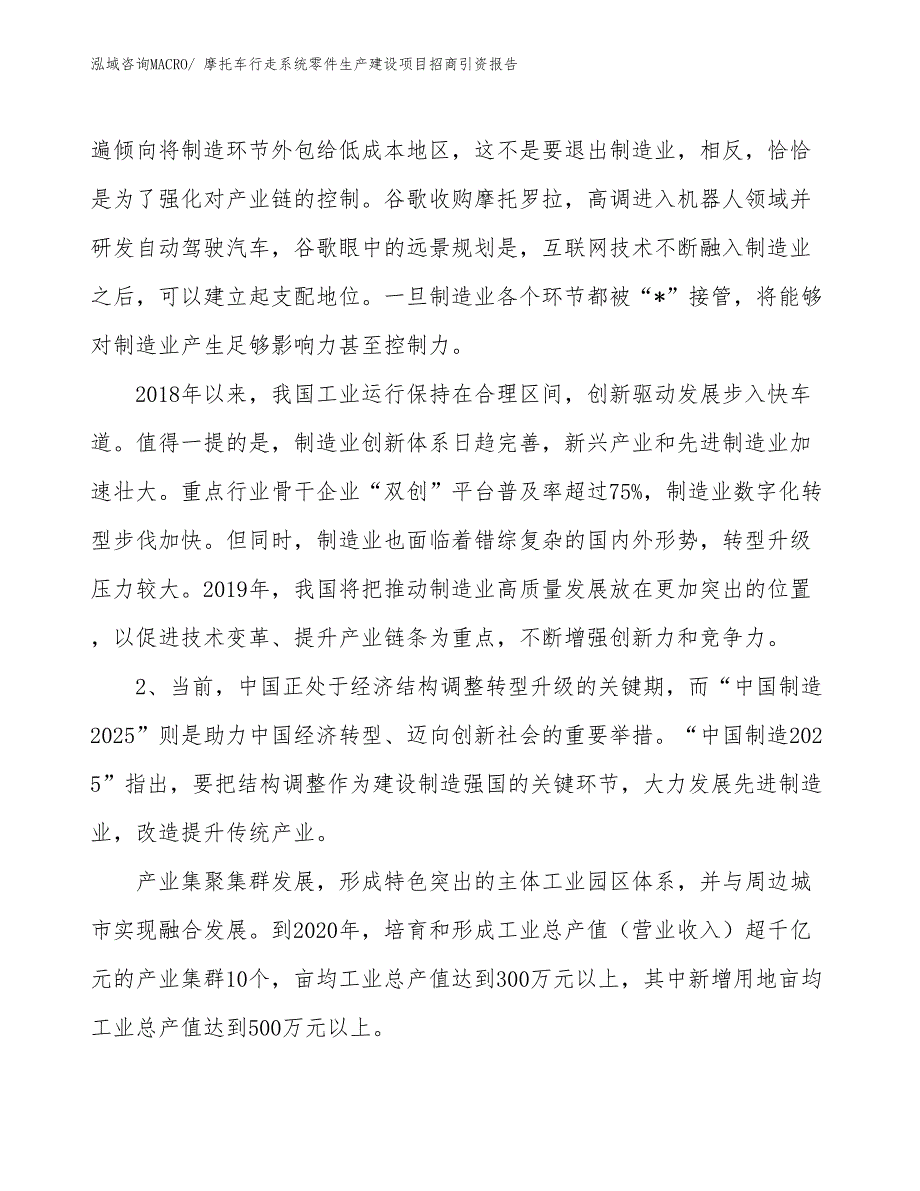 泓域咨询MACRO/ 摩托车行走系统零件生产建设项目招商引资报告
遍倾向将制造环节外包给低成本地区，这不是要退出制造业，相反，恰恰
是为了强化对产业链的控制。谷歌收购摩托罗拉，高调进入机器人领域并
研发自动驾驶汽车，谷歌眼中的远景规划是，互联网技术不断融入制造业
之后，可以建立起支配地位。一旦制造业各个环节都被“*”接管，将能够
对制造业产生足够影响力甚至控制力。
2018年以来，我国工业运行保持在合理区间，创新驱动发展步入快车
道。值得一提的是，制造业创新体系日趋完善，新兴产业和先进制造业加
速壮大。重点行业骨干企业“双创”平台普及率超过75%，制造业数字化转
型步伐加快。但同时，制造业也面临着错综复杂的国内外形势，转型升级
压力较大。2019年，我国将把推动制造业高质量发展放在更加突出的位置
，以促进技术变革、提升产业链条为重点，不断增强创新力和竞争力。
2、当前，中国正处于经济结构调整转型升级的关键期，而“中国制造
2025”则是助力中国经济转型、迈向创新社会的重要举措。“中国制造202
5”指出，要把结构调整作为建设制造强国的关键环节，大力发展先进制造
业，改造提升传统产业。
产业集聚集群发展，形成特色突出的主体工业园区体系，并与周边城
市实现融合发展。到2020年，培育和形成工业总产值（营业收入）超千亿
元的产业集群10个，亩均工业总产值达到300万元以上，其中新增用地亩均
工业总产值达到500万元以上。